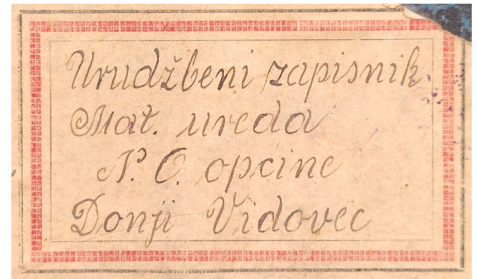 Urudžbeni zapisnik
Mat. ureda
N. O. općine
Donji Vidovec